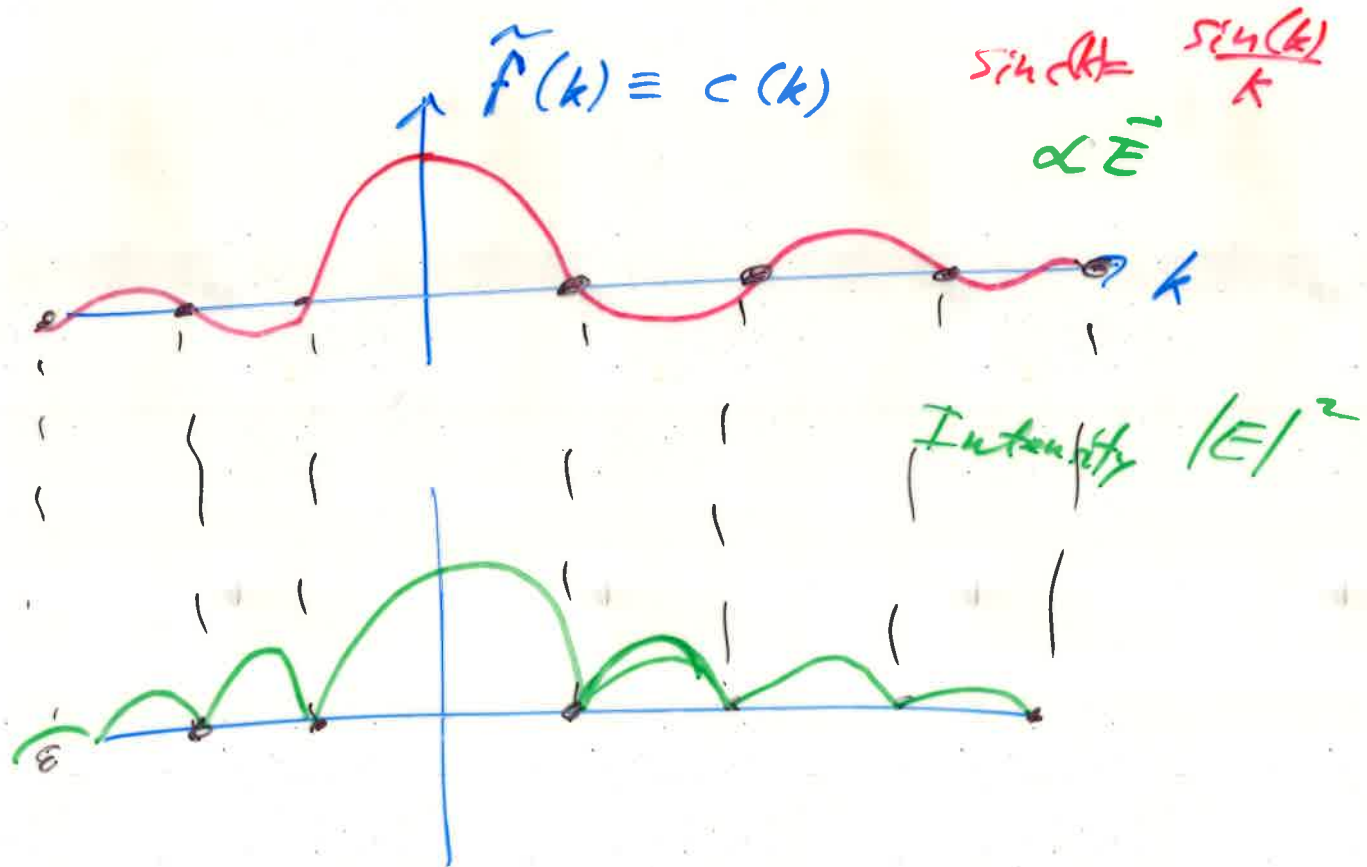 f̃(k) ≡ c(k)
sinc(k) = sin(k)/k
∝ E⃗
k
Intensity |E|²